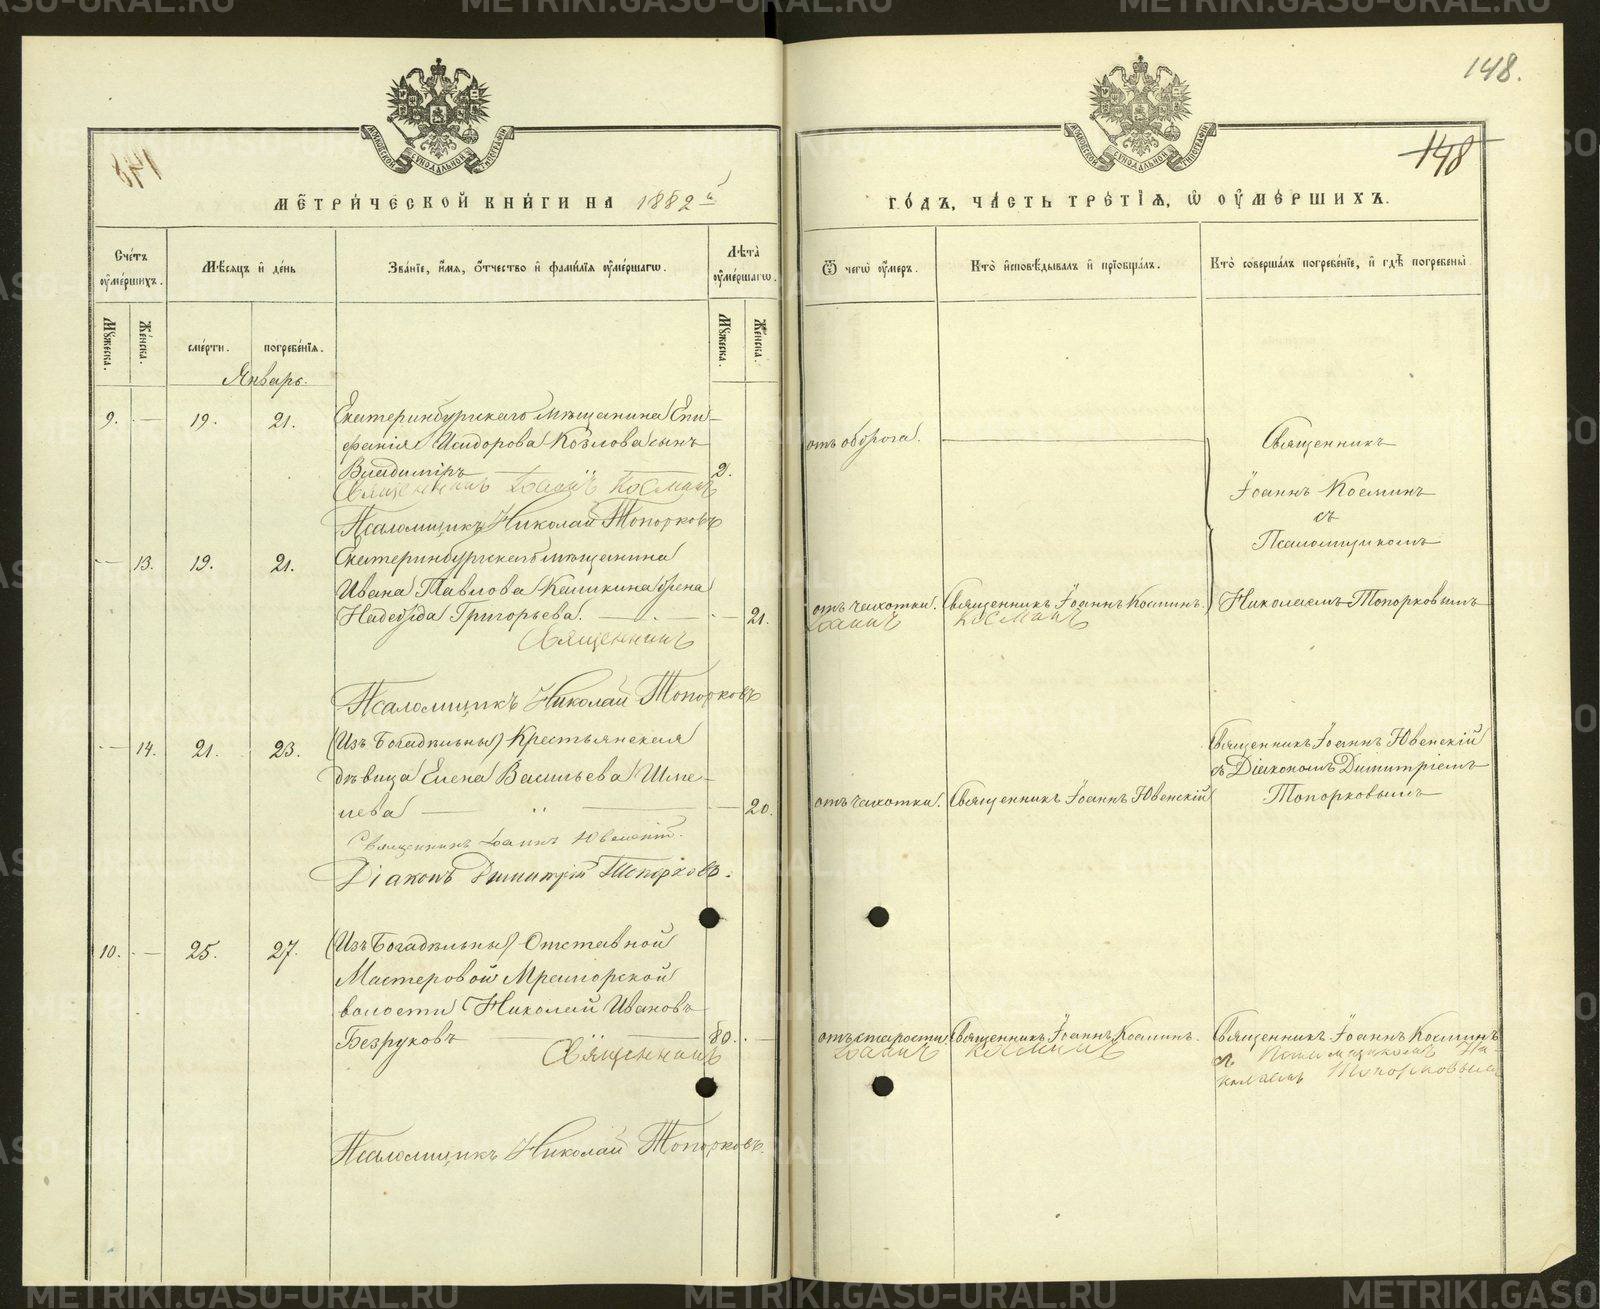 148.
148
МЕТРИЧЕСКОЙ КНИГИ НА 1882й
ГОДЪ, ЧАСТЬ ТРЕТІЯ, Ѡ ОУМЕРШИХЪ.
Счетъ оумершихъ.
Мѣсяцъ и день
Званіе, имя, отчество и фамилія оумершагѡ.
Лѣта оумершагѡ.
Ѿ чегѡ оумеръ.
Кто исповѣдывалъ и пріобщалъ.
Кто совершалъ погребеніе, и гдѣ погребены
Мужеска.
Женска.
смерти.
погребенія.
Мужеска.
Женска.
Январь.
9. — 19. 21. Екатеринбургскаго мѣщанина Епи-
фанія Исидорова Козлова сынъ
Владиміръ — 2.
отъ оборога.
Священникъ Іоаннъ Косминъ
Псаломщикъ Николай Топорковъ
Священникъ
Іоаннъ Косминъ
съ
Псаломщикомъ
Николаемъ Топорковымъ
— 13. 19. 21. Екатеринбургскаго мѣщанина
Ивана Павлова Кашкина жена
Надежда Григорьева. — 21.
отъ чахотки. Священникъ Іоаннъ Косминъ.
Священникъ Іоаннъ Косминъ
Псаломщикъ Николай Топорковъ
— 14. 21. 23. (Изъ Богадѣльны) Крестьянская
дѣвица Елена Васильева Шме-
лева — 20.
отъ чахотки. Священникъ Іоаннъ Ювенскій
Священникъ Іоаннъ Ювенскій
съ Діакономъ Димитріемъ
Топорковымъ
Священникъ Іоаннъ Ювенскій.
Діаконъ Димитрій Топорковъ.
10. — 25. 27. (Изъ Богадѣльны) Отставной
Мастеровой Мраморской
волости Николай Ивановъ
Безруковъ — 80. —
отъ старости. Священникъ Іоаннъ Косминъ.
Священникъ Іоаннъ Косминъ
съ Псаломщикомъ Ни-
колаемъ Топорковымъ
Священникъ Іоаннъ Косминъ
Псаломщикъ Николай Топорковъ.
METRIKI.GASO-URAL.RU